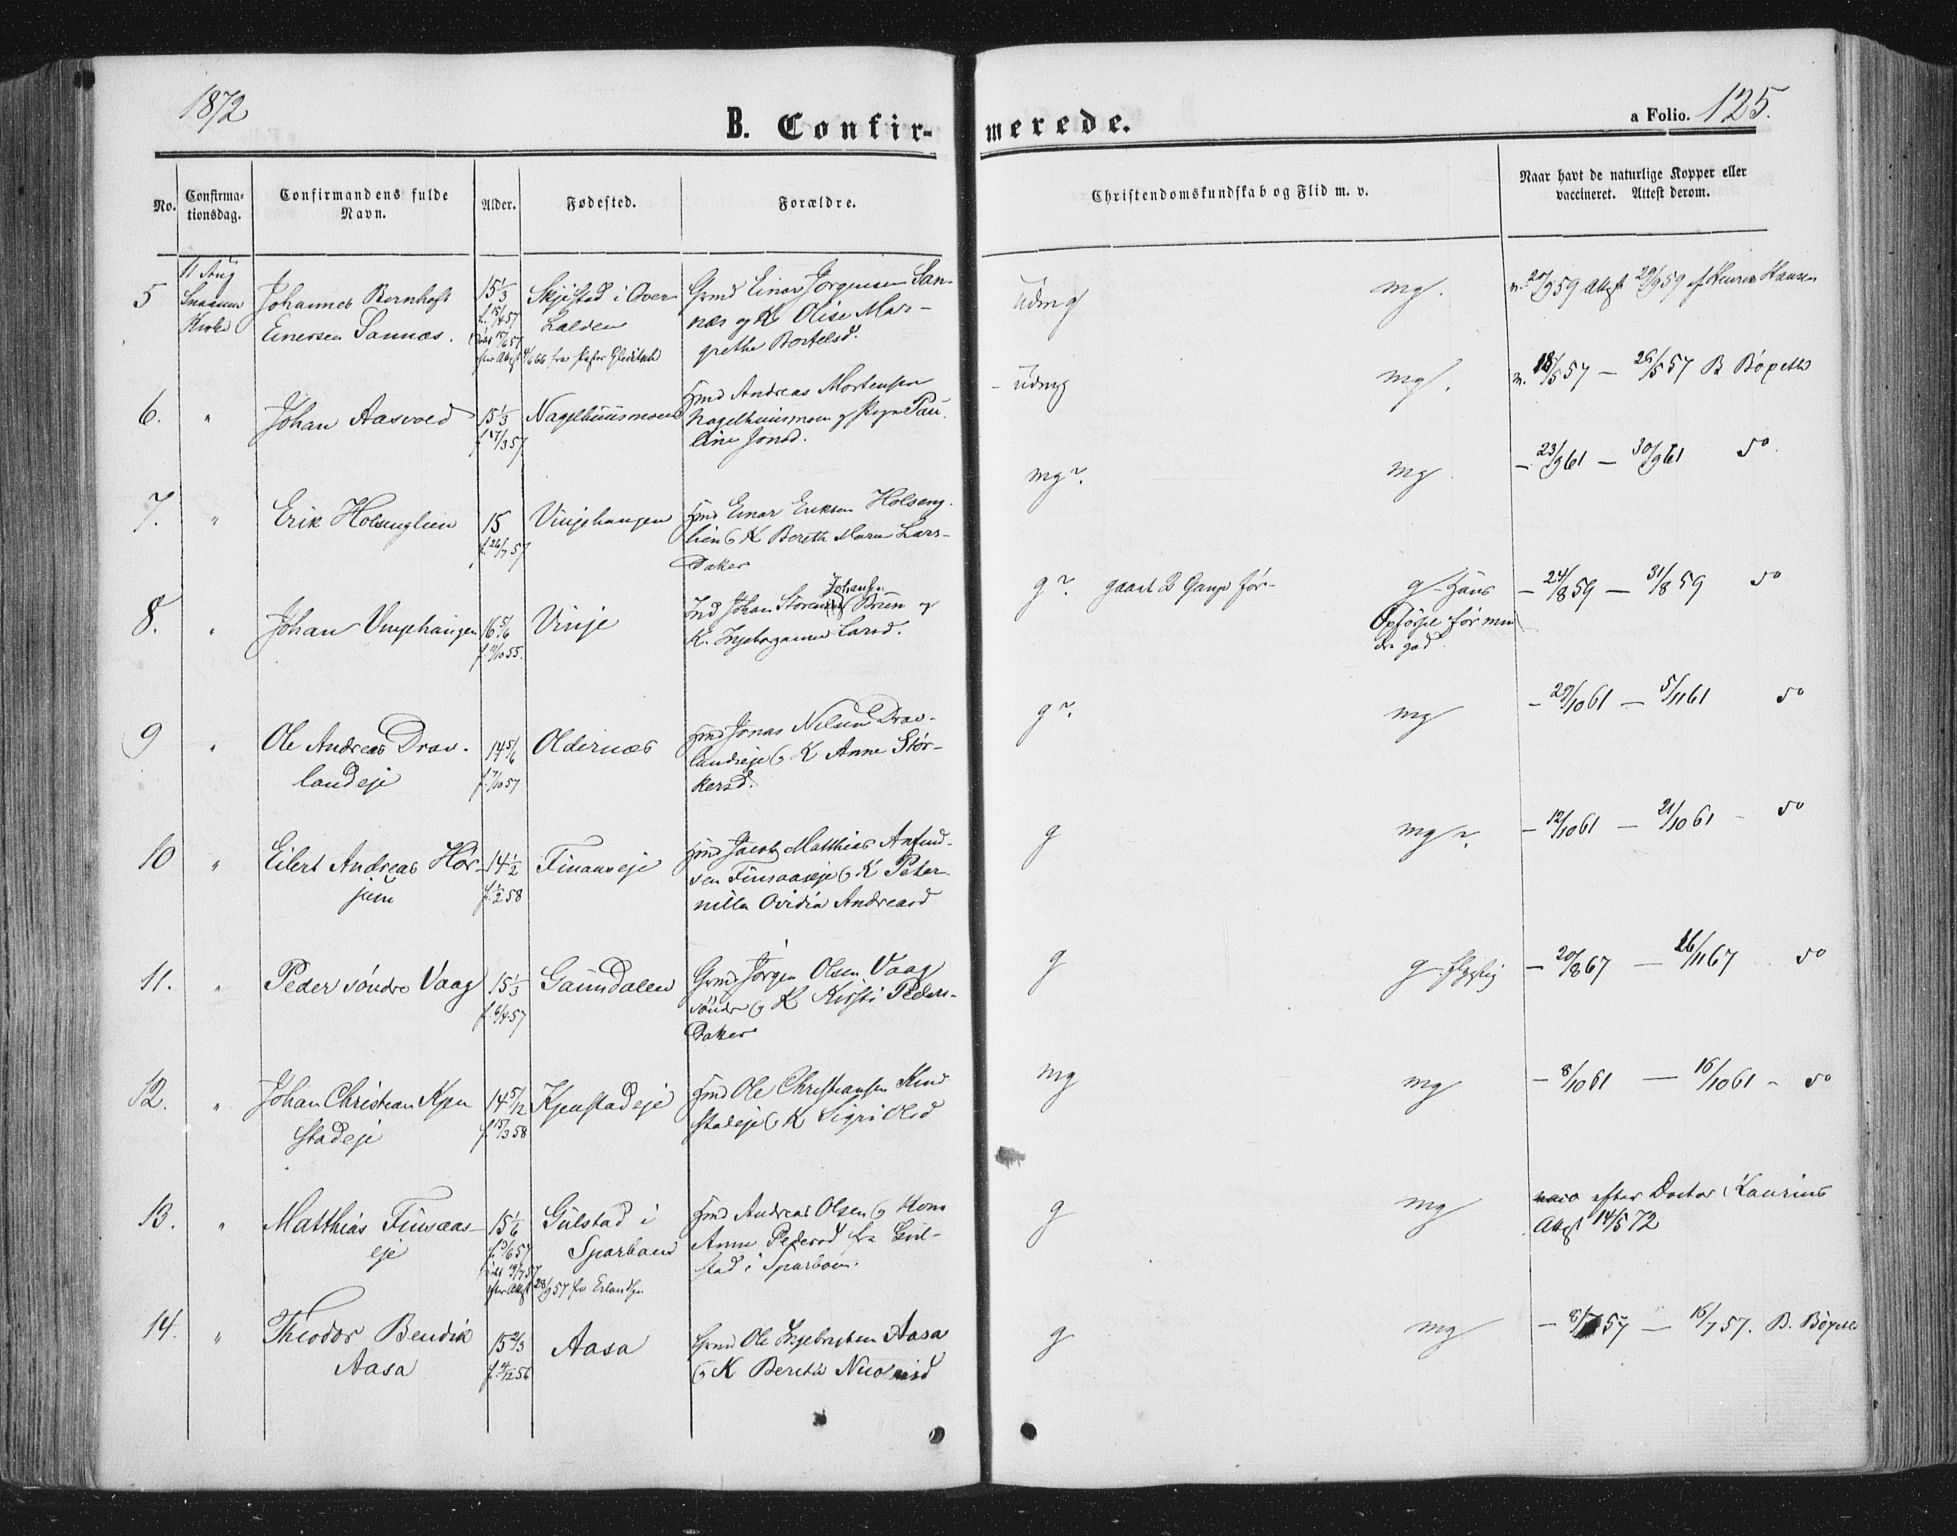 1872
B. Confir-
merede.
a Folio. 125.
No.
Confirma-
tionsdag.
Confirmandens fulde
Navn.
Alder.
Fødested.
Forældre.
Christendomskundskab og Flid m. v.
Naar havt de naturlige Kopper eller
vaccineret. Attest derom.
5
11 Aug
Snaasens
Kirke
Johannes Bernhoft
Einersen Sannæs.
15 1/3
f. 15/4 57
Skjefstad i Over
Halden
fra Pastor Gleditsch
Grmd Einar Jørgensen San-
næs og K Olise Mar-
grethe Bortelsd.
udmg
mg.
6.
"
Johan Aasvold
15 1/3
f. 17/3 57
Nagelhuusmoen
Hmd Andreas Mortensen
Nagelhuusmoen og Pigen Pau-
line Jonsd.
udmg
mg.
18/5 57 — 26/5 57 B Bøpeth
7.
"
Erik Holsenglien
15
f. 26/7 57
Vinjehaugen
Hmd Einar Eriksen Holseng-
lien og K Bereth Maria Lars-
Datter
mg?.
mg
— 23/9 61 — 30/9 61 so
8.
"
Johan Vinjehaugen
16 5/6
f. 11/10 55.
Vinje
Johansen
K. Ingeborganna Larsd.
g?. gaaet 2 Gange før-
g - Hans
Opførsel før min
dre god.
— 24/8 59 — 31/8 59 so
9
"
Ole Andreas Drav-
landeje
14 5/6
f. 7/10 57
Oldernæs
Hmd Jonas Nilsen Drav-
landseje og K Anne Stør-
kersd.
g?.
mg
— 29/10 61 — 5/11 61 so
10
"
Eilert Andreas Hør-
jem
14 1/2
f. 1/2 58
Finsaaseje
Hmd Jacob Matthias Anfind-
sen Finsaaseje og K Peter-
nilla Ovidia Andreasd
g
mg?.
— 12/10 61 — 21/10 61 - so
11.
"
Peder søndre Vaag
15 1/3
f. 6/4 57
Gaundalen
Grmd Jørgen Olsen Vaag
søndre og K Kirsti Peders-
Datter
g
g flygtig
— 20/8 67 — 26/11 67 so
12.
"
Johan Christian Kjen
stadeje
14 5/12
f. 15/3 58
Kjenstadeje
Hmd Ole Christiansen Kin
stadeje og K Sigri Olsd
mg
mg
— 8/10 61 — 16/10 61 - so
13.
"
Matthias Finsaas-
eje
15 1/6
Gulstad i
Sparboen
28/9 57 fra Erlandsen
Hmd Andreas Olsen og Kone
Anne Pedersd fra Gul-
stad i Sparboen.
g
mg
efter Doctor Kaurins
Attest 14/5 72
14.
"
Theodor Bendik
Aasa
15 2/3
f. 4/12 56
Aasa
Grmd Ole Ingebrigtsen Aasa
og K Berethe Nicolaisd
g
mg
— 8/7 57 — 16/7 57. B. Bøpeth